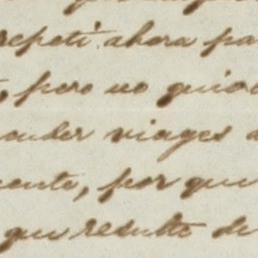 repeti ahora pa
, pero no quie
ender viages a
ente, por que
que resulte de